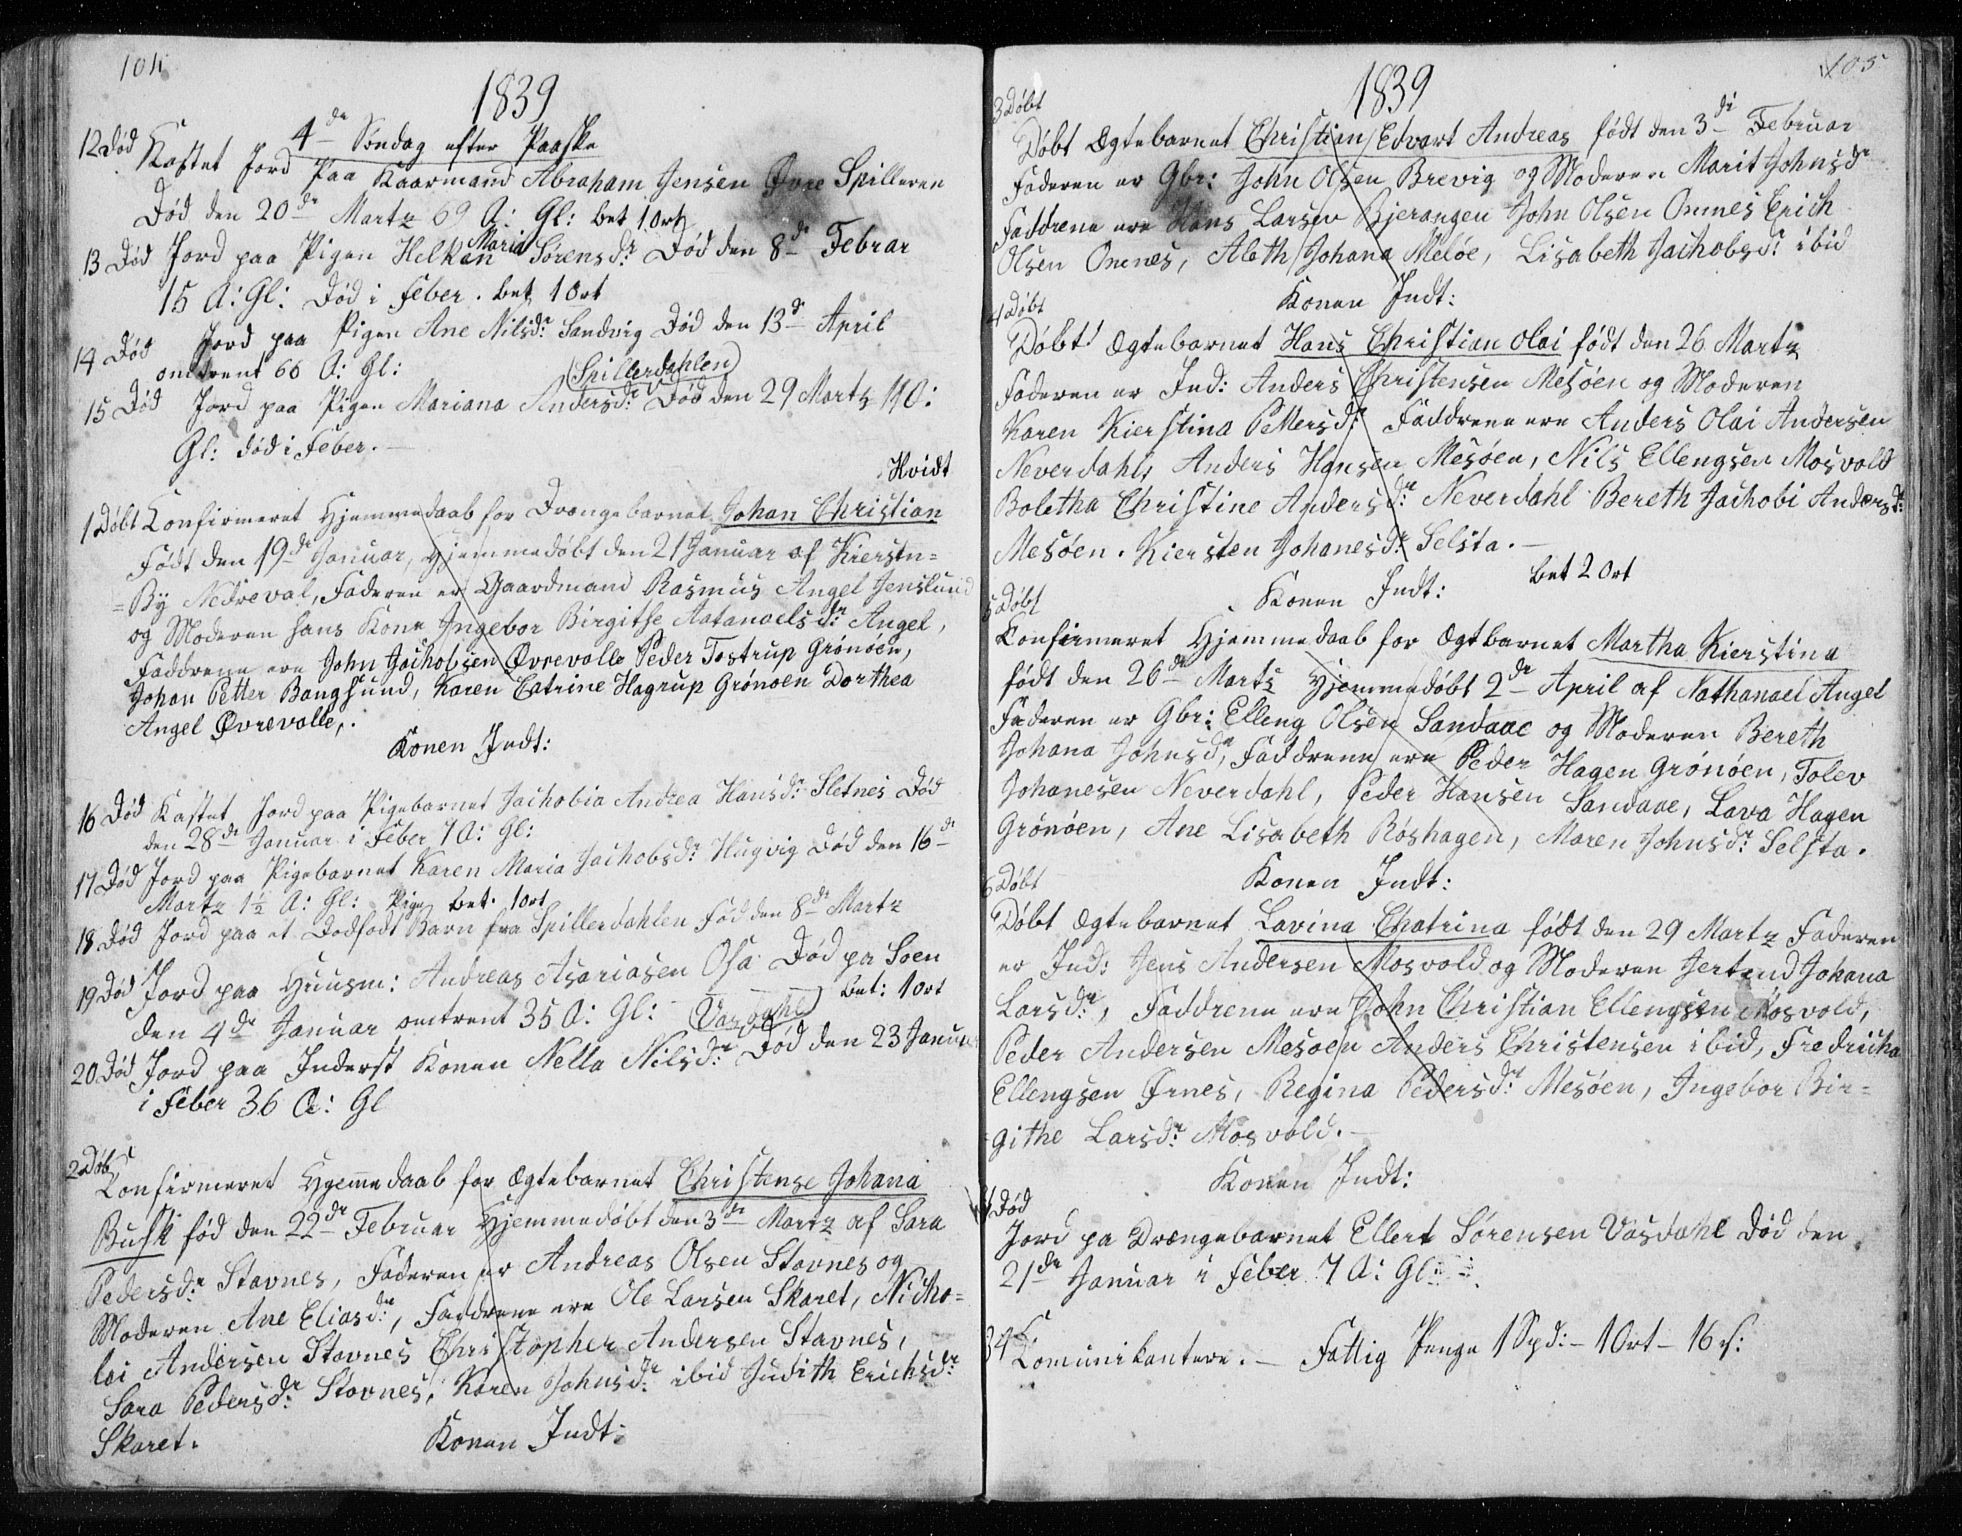 104
1839
4de Søndag efter Paaske
12 Død Kastet Jord Paa Kaarmand Abraham Jensen Øvre Spilleren
Død den 20de Martz 69 A: Gl: bet 1 Ort
13 Død Jord paa Pigen Helken Maria Sørensdr: Død den 8de Februar
15 A: Gl: Død i Feber. bet 1 Ort
14 Død Jord paa Pigen Ane Nilsdr: Sandvig Død den 13de April
omtrent 66 A: Gl:
(Spillerdahlen)
15 Død Jord paa Pigen Mariana Andersdr: Død den 29 Martz
Gl: død i Feber. —
Hvidt
1 Døbt Confirmeret Hjemmedaab for Drengebarnet Johan Christian
Født den 19de Januar, Hjemmedøbt den 21 Januar af Kiersten=
=By Nedreval, Faderen er Gaardmand Rasmus Angel Jenslund
og Moderen hans Kone Ingebor Birgithe Natanaelsdr: Angel,
Faddrene ere John Jachobsen Øvrevalle Peder Tostrup Grønøen,
Johan Petter Bangsund, Karen Catrine Hagrup Grønøen Dorthea
Angel Øvrevalle,.
Konen Indt:
16 Død Kastet Jord paa Pigebarnet Jachobia Andrea Hansdr: Sletnes Død
den 28de Januar i Feber 7 A: Gl:
17 Død Jord paa Pigebarnet Karen Maria Jachobsdr: Hugvig Død den 16de
Martz 1½ A: Gl: Pige bet. 1 ort
18 Død Jord paa et Dødfødt Barn fra Spillerdahlen Fød den 8de Martz
19 Død Jord paa Huusm: Andreas Asariasen Osa Død pa Soen
den 4de Januar omtrent 35 A: Gl: bet: 1 Ort
(Vasdahl)
20 Død Jord paa Inderst Konen Nella Nilsdr: Død den 23 Januar
i Feber 36 A: Gl
2 Døbt
Confirmeret Hjemmedaab for Ægtebarnet Christense Johana
Busk fød den 22de Februar Hjemmedøbt den 3de Martz af Sara
Pedersdr: Stavnes, Faderen er Andreas Olsen Stavnes og
Moderen Ane Eliasdr:, Faddrene ere Ole Larsen Skaret, Nicho=
lai Andersen Stavnes Christopher Andersen Stavnes,
Sara Pedersdr: Stavnes, Karen Johnsdr: ibid Judith Erichsdr:
Skaret.
Konen Indt:
105
1839
3 Døbt
Døbt Ægtebarnet Christian Edvart Andreas født den 3di Februar
Faderen er Gbr: John Olsen Brevig og Moderen Marit Johnsdr
Faddrene ere Hans Larsen Bjerangen John Olsen Onnes Erich
Olsen Onnes, Aleth Johana Meløe, Lisabeth Jachobsdr: ibid
Konen Indt:
4 Døbt
Døbt Ægtebarnet Hans Christian Olai født den 26 Martz
Faderen er Ind: Anders Christensen Mesøen og Moderen
Karen Kierstina Pettersdr: Faddrene ere Anders Olai Andersen
Neverdahl, Anders Hansen Mesøen, Nils Ellengsen Mosvold
Boletha Christine Andersdr: Neverdahl Bereth Jachobi Andersdr:
Mesøen. Kiersten Johanesdr: Selsta. —
Konen Indt: bet 2 Ort
5 Døbt
Confirmeret Hjemmedaab for Ægtbarnet Martha Kierstina
født den 26de Martz Hjemmedøbt 2de April af Nathanael Angel
Faderen er Gbr: Elleng Olsen Sandaae og Moderen Bereth
Johana Johnsdr, Faddrene ere Peder Hagen Grønøen, Tolev
Johanesen Neverdahl, Peder Hansen Sandaae, Lava Hagen
Grønøen, Ane Lisabeth Røshagen, Maren Johnsdr: Selsta.
Konen Indt:
6 Døbt
Døbt Ægtebarnet Lavina Chatrina født den 29 Martz Faderen
er Ind: Jens Andersen Mosvold og Moderen Jertrud Johana
Larsdr:, Faddrene ere John Christian Ellengsen Mosvold,
Peder Andersen Mesøen Anders Christensen ibid, Fredricha
Ellengsen Ørnes, Regina Pedersdr: Mesøen, Ingebor Bir=
=githe Larsdr: Mosvold. —
Konen Indt:
Død
Jord pa Drængebarnet Ellert Sørensen Vasdahl Død den
21de Januar i Feber 7 A: Gl:
34 Comunikantere. — Fattig Penge 1 Spd: – 1 Ort – 16 s: